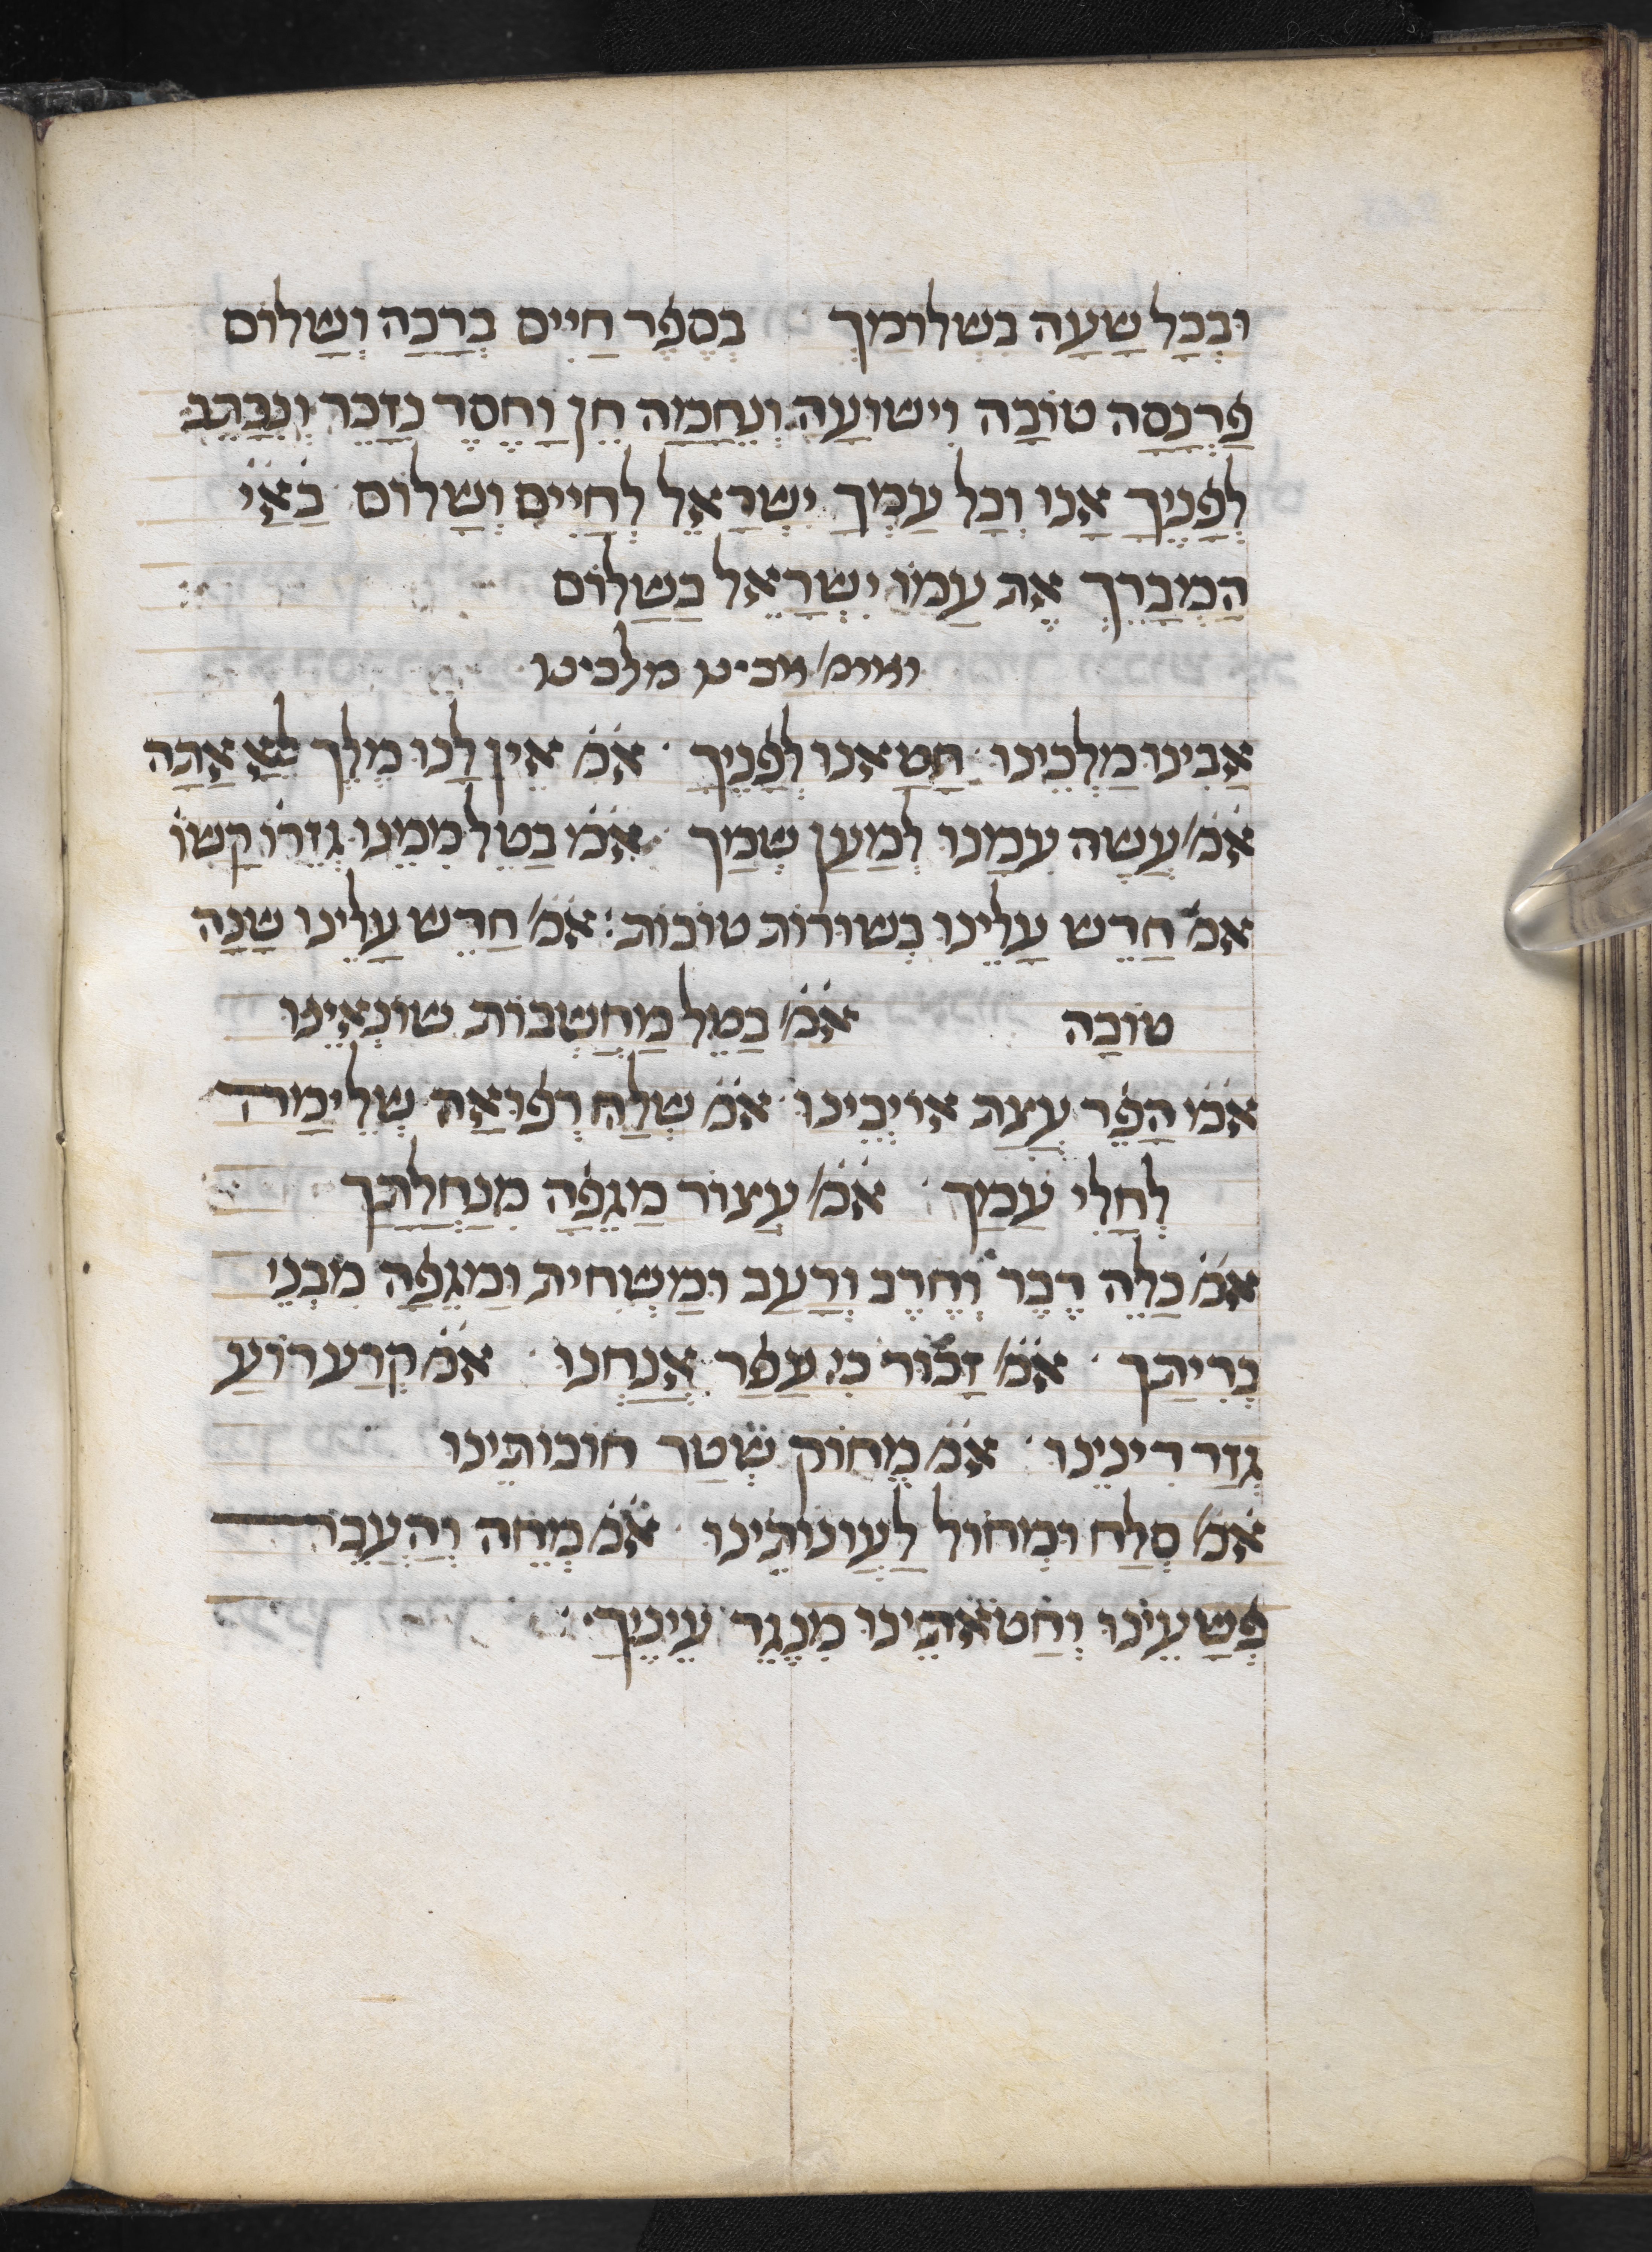 וּבְכָל שָׁעָה בִשְׁלוֹמָךְ בְּסֵפֶר חַיִּים בְּרָכָה וְשָׁלוֹם
פַּרְנָסָה טוֹבָה וִישׁוּעָה וְנֶחָמָה חֵן וָחֶסֶד נִזָּכֵר וְנִכָּתֵב
לְפָנֶיךָ אָנוּ וְכָל עַמְּךָ יִשְׂרָאֵל לְחַיִּים וְשָׁלוֹם בא״י
הַמְבָרֵךְ אֶת עַמּוֹ יִשְׂרָאֵל בַּשָּׁלוֹם
ואומ׳ אבינו מלכינו
אָבִינוּ מַלְכֵּינוּ חָטָאנוּ לְפָנֶיךָ אמ׳ אֵין לָנוּ מֶלֶךְ אֶלָּא אַתָּה
אמ׳ עֲשֵׂה עִמָּנוּ לְמַעַן שְׁמָךְ אמ׳ בַּטֵּל מִמֶּנּוּ גְּזֵרוֹ׳ קָשׁוֹ׳
אמ׳ חַדֵּשׁ עָלֵינוּ בְּשׂוּרוֹת טוֹבוֹת אמ׳ חַדֵּשׁ עָלֵינוּ שָׁנָה
טוֹבָה אמ׳ בַּטֵּל מַחְשְׁבוֹת שׂוֹנְאֵינוּ
אמ׳ הָפֵר עֲצַת אוֹיְבֵינוּ אמ׳ שְׁלַח רְפוּאָה שְׁלֵימָה
לְחָלֵי עַמָּךְ אמ׳ עֲצוֹר מַגֵּפָה מִנַּחְלָתָךְ
אמ׳ כַּלֵּה דֶּבֶר וְחֶרֶב וְרָעָב וּמַשְׁחִית וּמַגֵּפָה מִבְּנֵי
בְרִיתָךְ אמ׳ זָכוּר כִּי עָפָר אֲנָחְנוּ אמ׳ קְרַע רוֹעַ
גְּזַר דִּינֵינוּ אמ׳ מְחוֹק שְׁטַר חוֹבוֹתֵינוּ
אמ׳ סְלַח וּמְחוֹל לַעֲוֹנוֹתֵינוּ אמ׳ מְחֵה וְהַעֲבֵר
פְּשָׁעֵינוּ וְחַטֹּאתֵינוּ מִנֶּגֶד עֵינֶיךָ